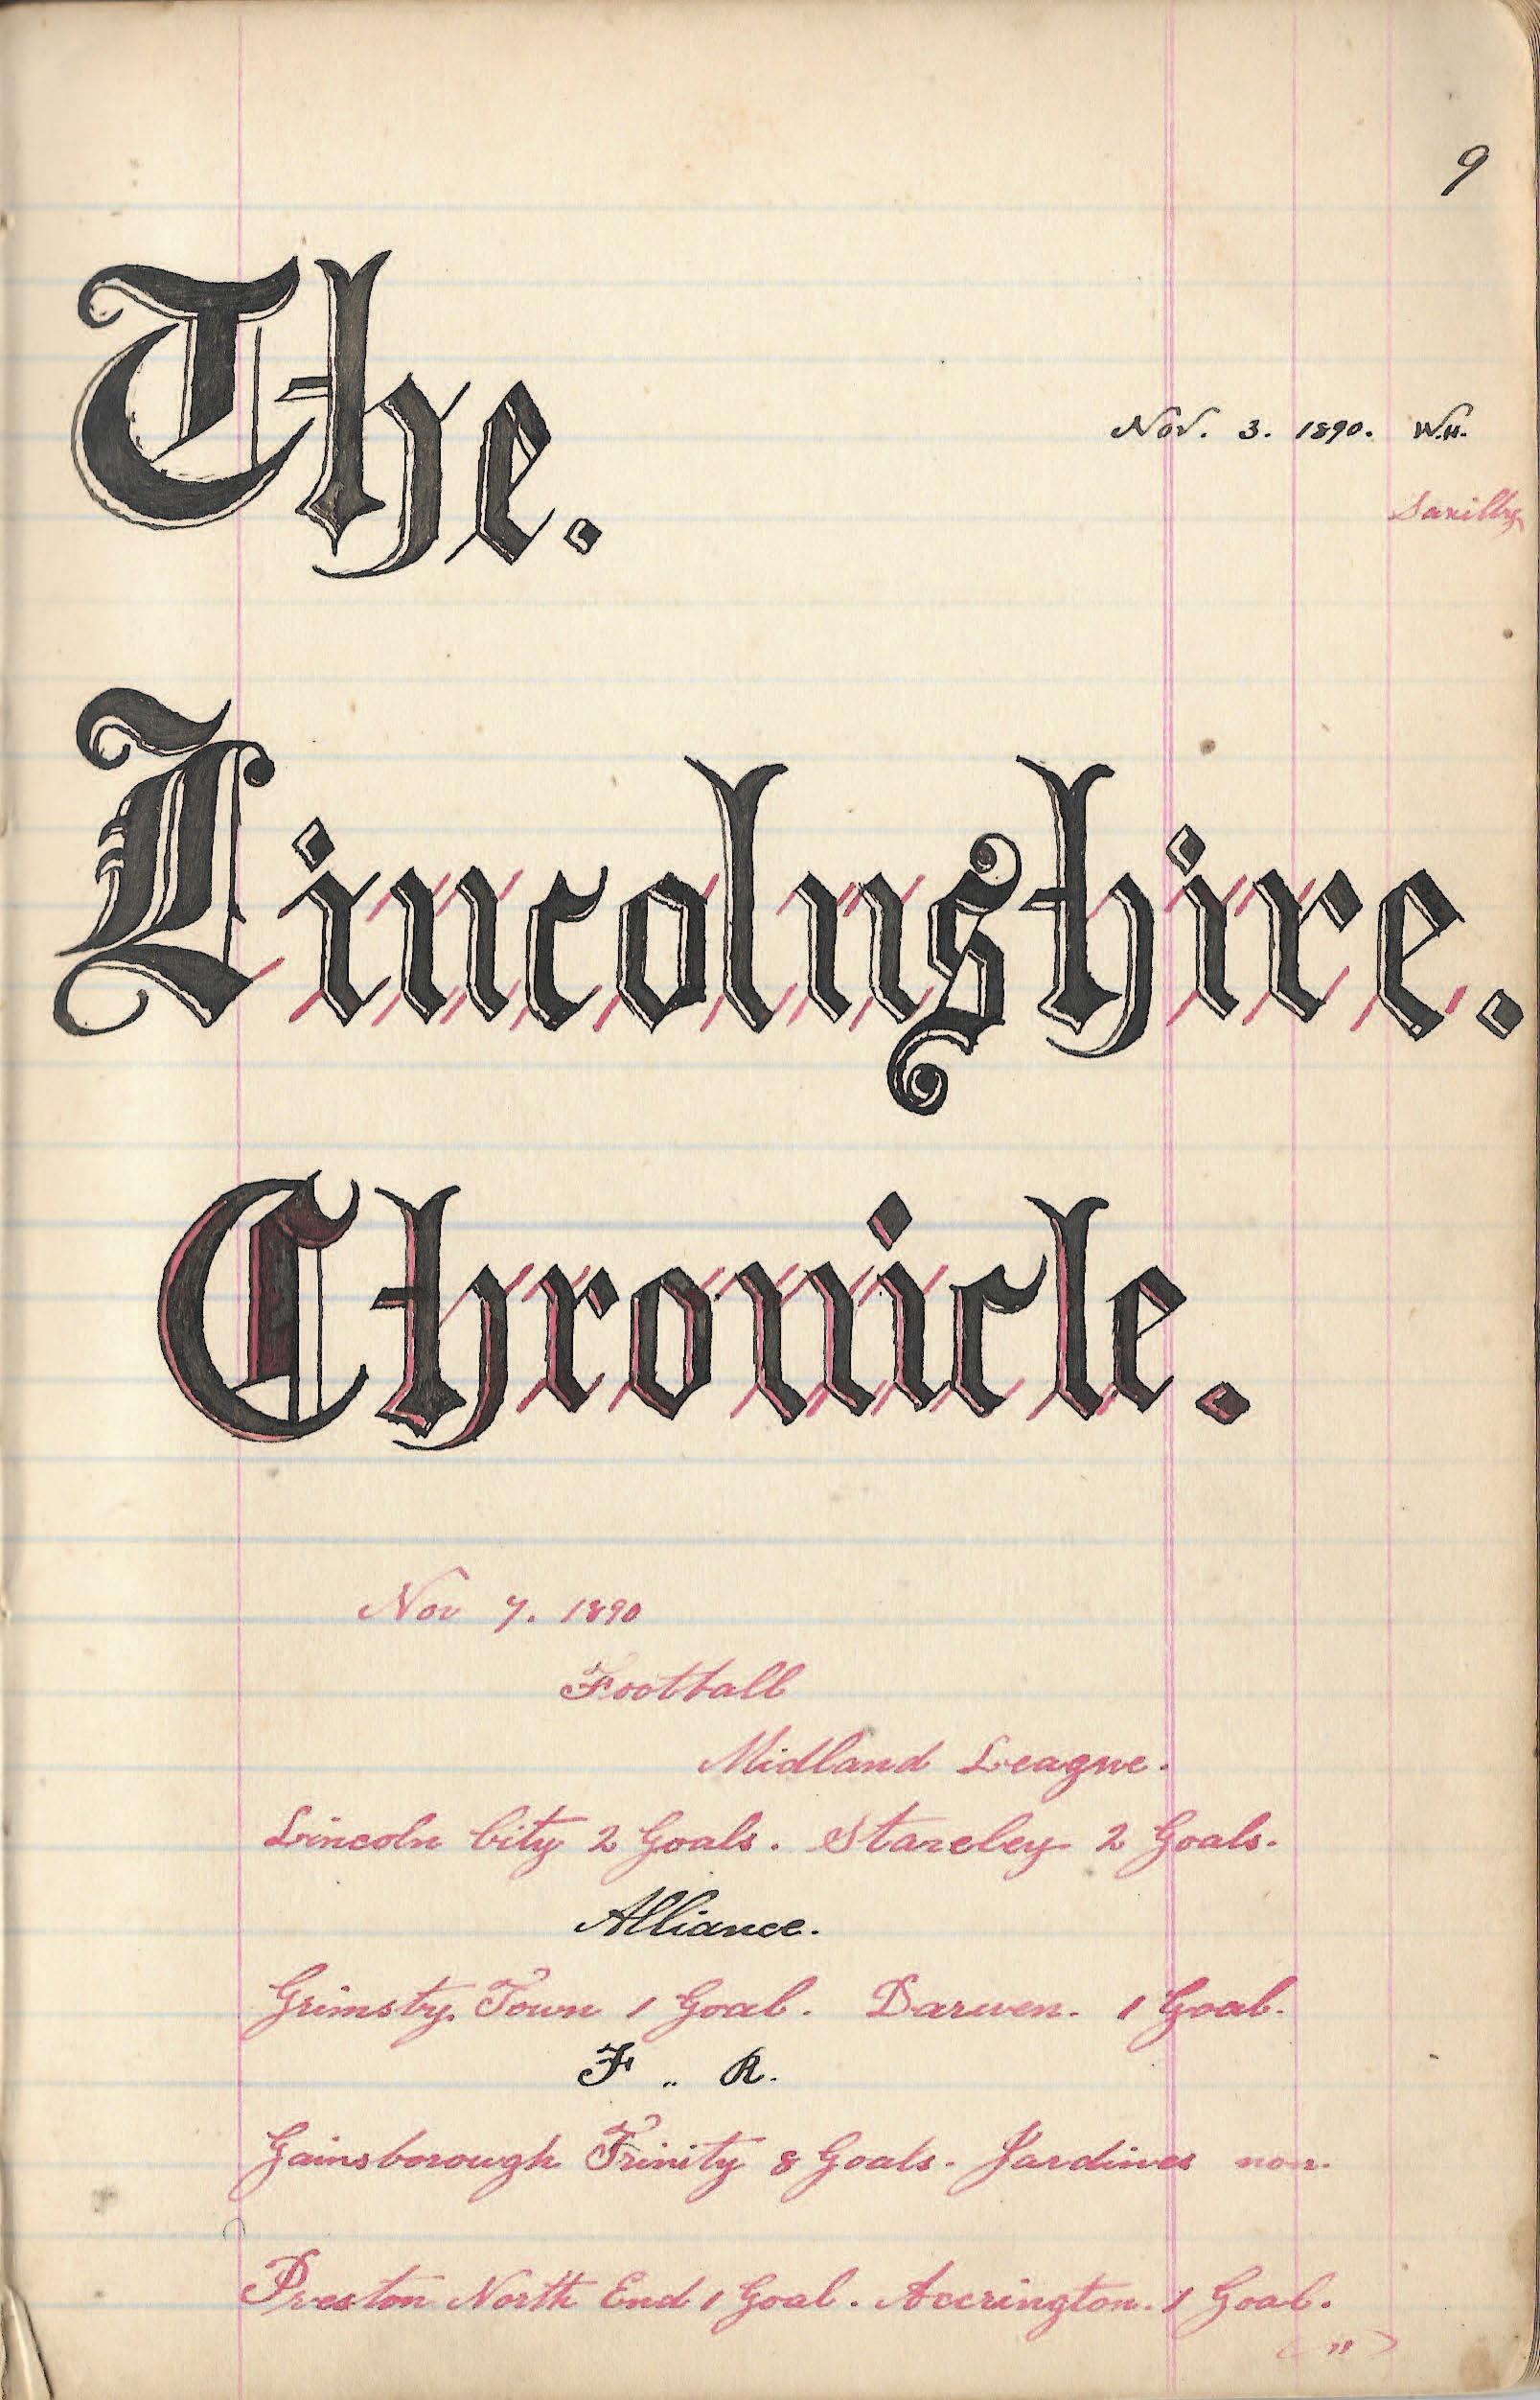 9
The.
Nov. 3. 1890. W.H.
Saxilby
Lincolnshire.
Chronicle.
Nov 7. 1890
Football
Midland League.
Lincoln City 2 Goals. Staveley 2 Goals.
Alliance.
Grimsby Town 1 Goal. Darwen. 1 Goal.
F .. R.
Gainsborough Trinity 8 Goals. Jardines non.
Preston North End 1 Goal. Accrington. 1 Goal.